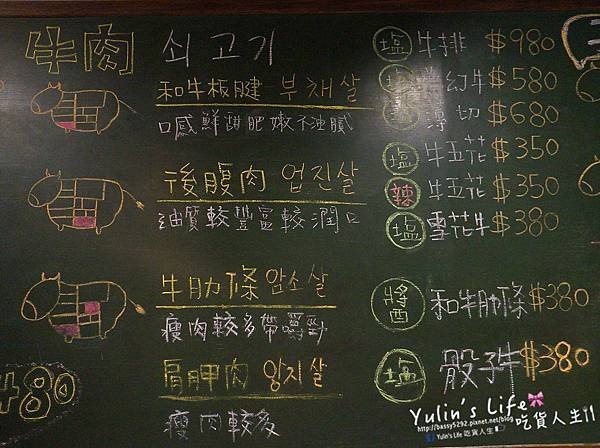 牛肉 쇠고기
和牛板腱 부채살
口感鮮甜肥嫩不油膩
後腹肉 업진살
油質較豐富較潤口
牛肋條 암소살
瘦肉較多帶嚼勁
肩胛肉 양지살
瘦肉較多
480
塩 牛排 $980
幻牛 $580
切 $680
塩 牛五花 $350
辣 牛五花 $350
塩 雪花牛 $380
醬 和牛肋條 $380
塩 骰子牛 $380
Yulin's Life
http://bassy5292.pixnet.net/blog
Yulin's Life 吃貨人生
吃貨人生!!